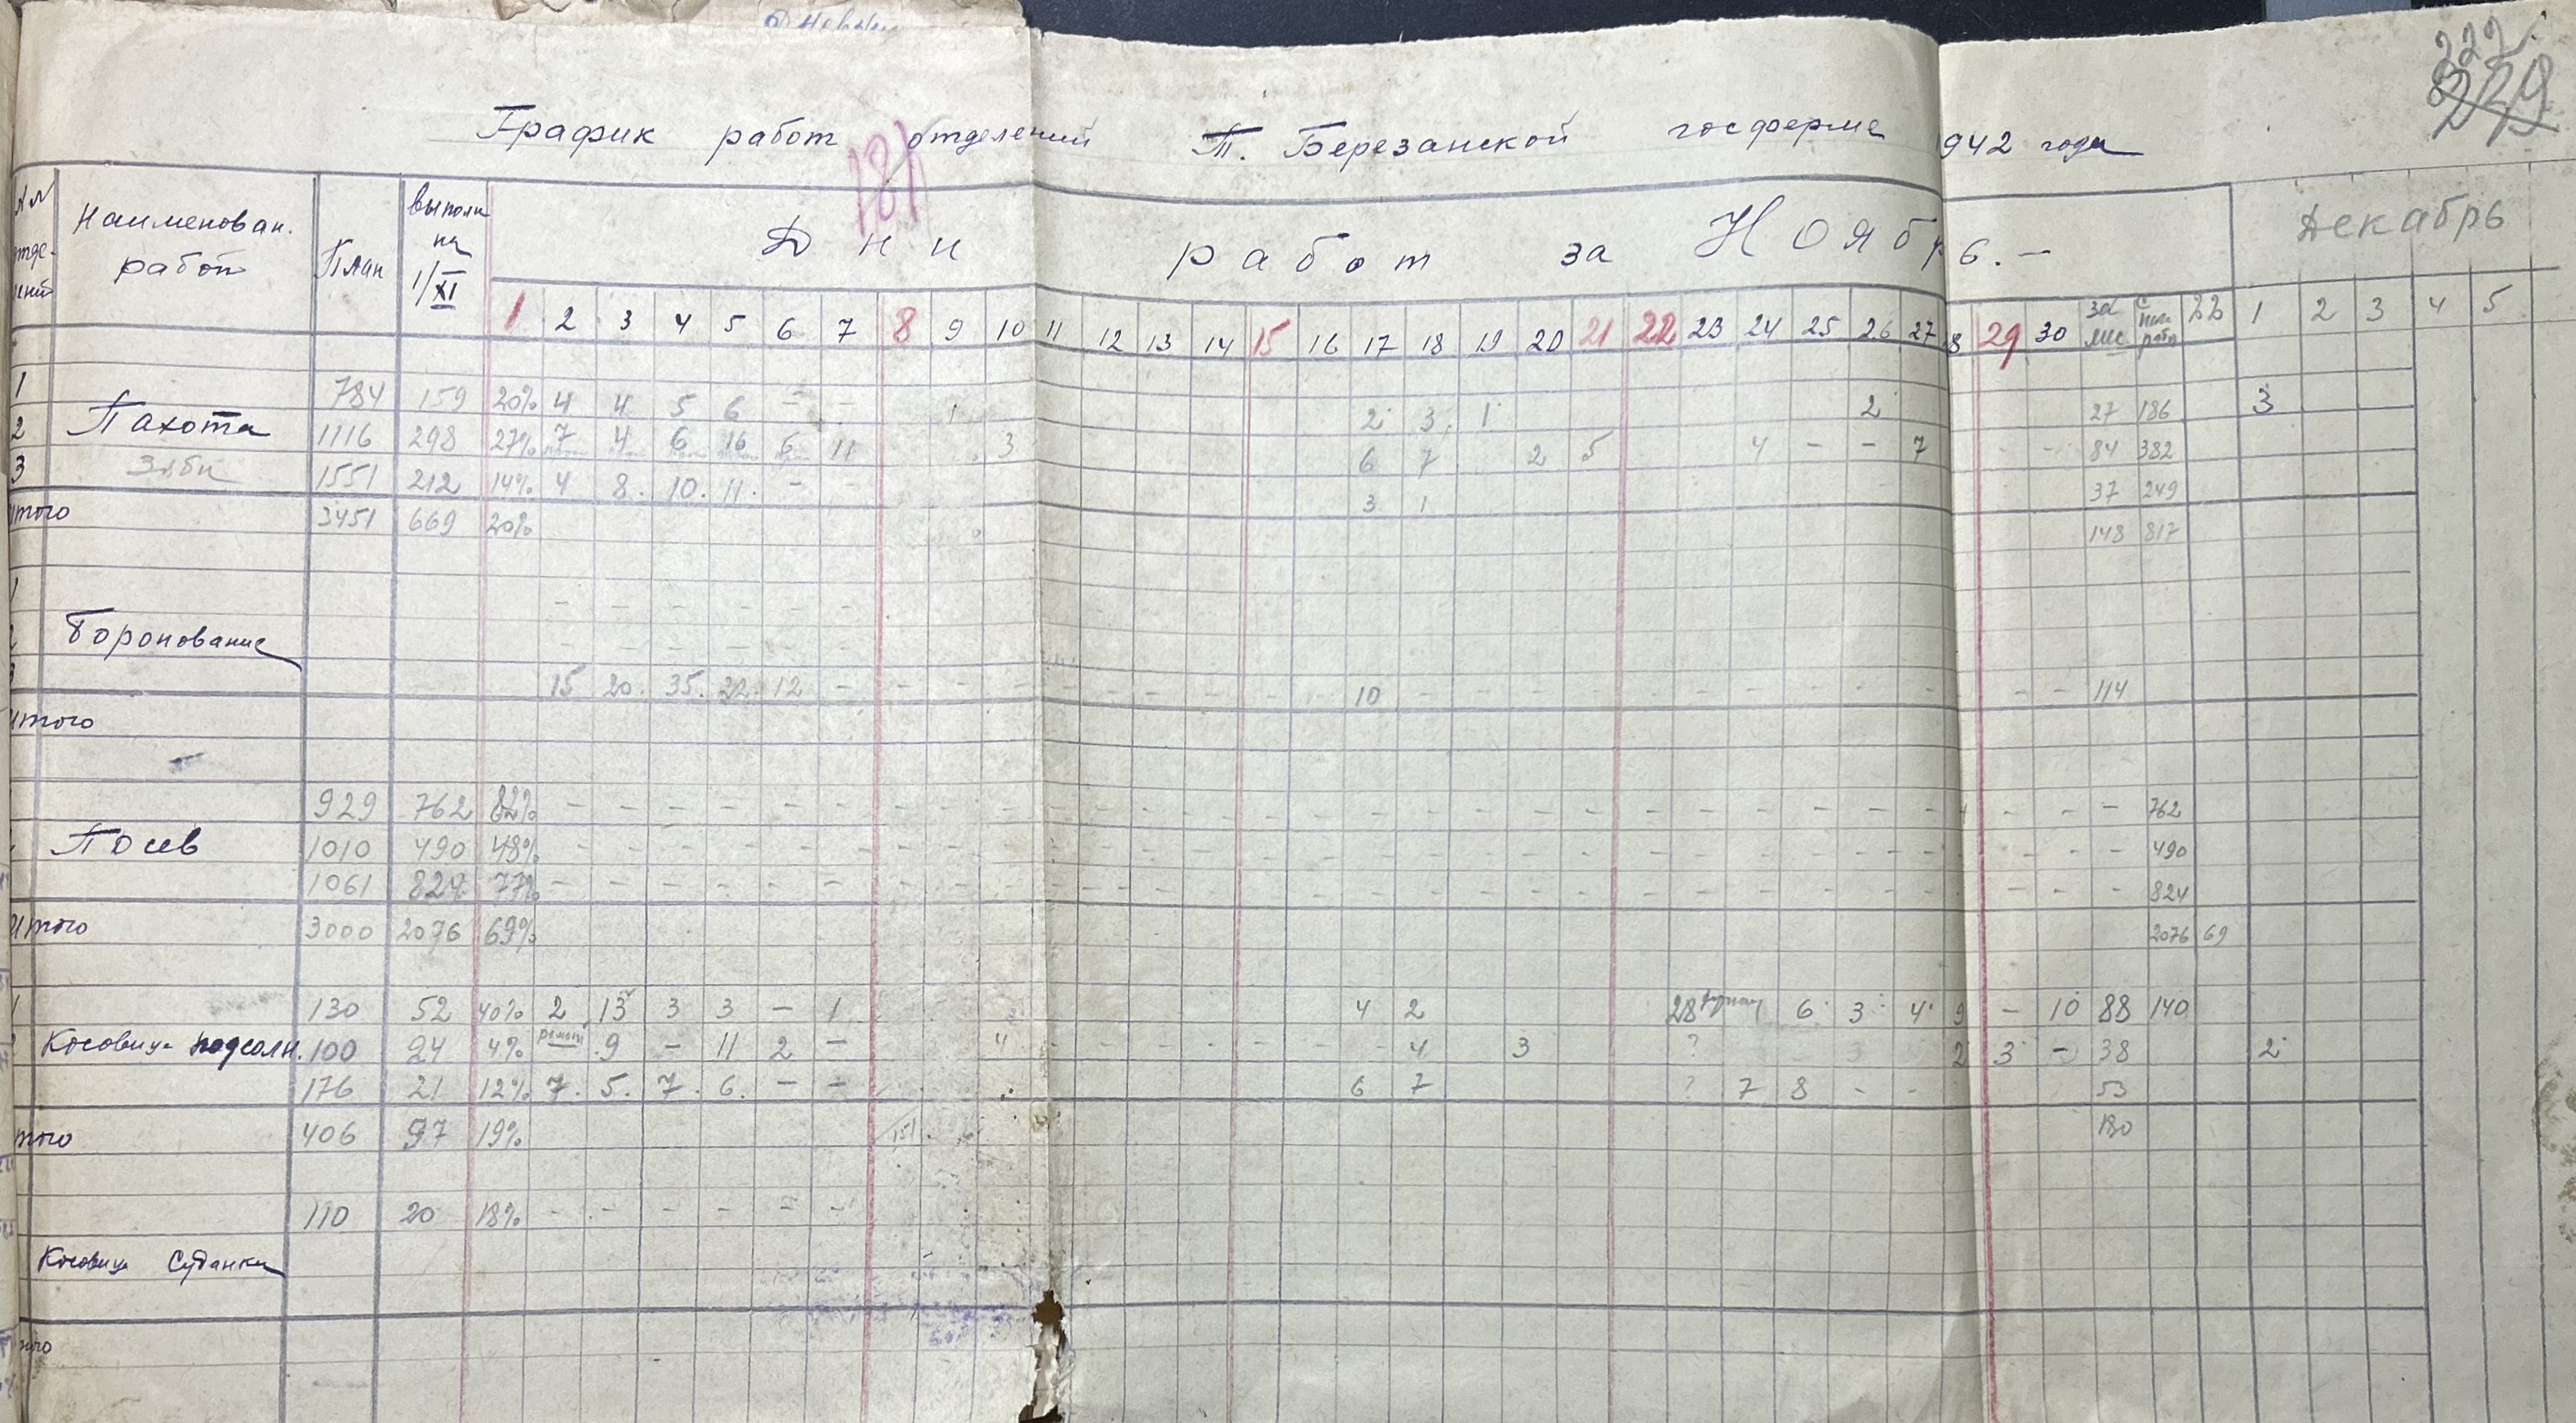 222
279
График работ отделений Т. Березанской госферме 1942 года
181
Наименован. работ План выполн на 1/XI Дни работ за Ноябрь. – Декабрь
1 2 3 4 5 6 7 8 9 10 11 12 13 14 15 16 17 18 19 20 21 22 23 24 25 26 27 28 29 30 за мес с нач. работ 1 2 3 4 5
1 784 159 20% 4 4 5 6 – – 1 2 3 1 2 27 186 3
2 Пахота 1116 298 27% 7 4 6 16 6 11 3 6 7 2 5 4 – – 7 – – 84 382
3 Зяби 1551 212 14% 4 8. 10. 11. – – 3 1 37 249
итого 3451 669 20% 148 817
1 – – – – – –
2 Боронование – – – – – –
3 15 20. 35. 22. 12 – – – – – – – – – – 10 – – – – – – – – – – – – – 114
итого
929 762 82% – – – – – – – – – – – – – – – – – – – – – – – – – – – – – – 762
Посев 1010 490 48% – – – – – – – – – – – – – – – – – – – – – – – – – – – – – – 490
1061 824 77% – – – – – – – – – – – – – – – – – – – – – – – – – – – – – – 824
итого 3000 2076 69% 2076 69
1 130 52 40% 2 13 3 3 – 1 4 2 28 6 3 4 9 – 10 88 140
Косовица подсолн. 100 24 4% ремонт 9 – 11 2 – 4 – – – – – – – 4 3 ? 2 3 – 38 2
176 21 12% 7. 5. 7. 6. – – 6 7 ? 7 8 - - 53
итого 406 97 19% 151 180
110 20 18% – – – – – –
Косовица Суданки
итого